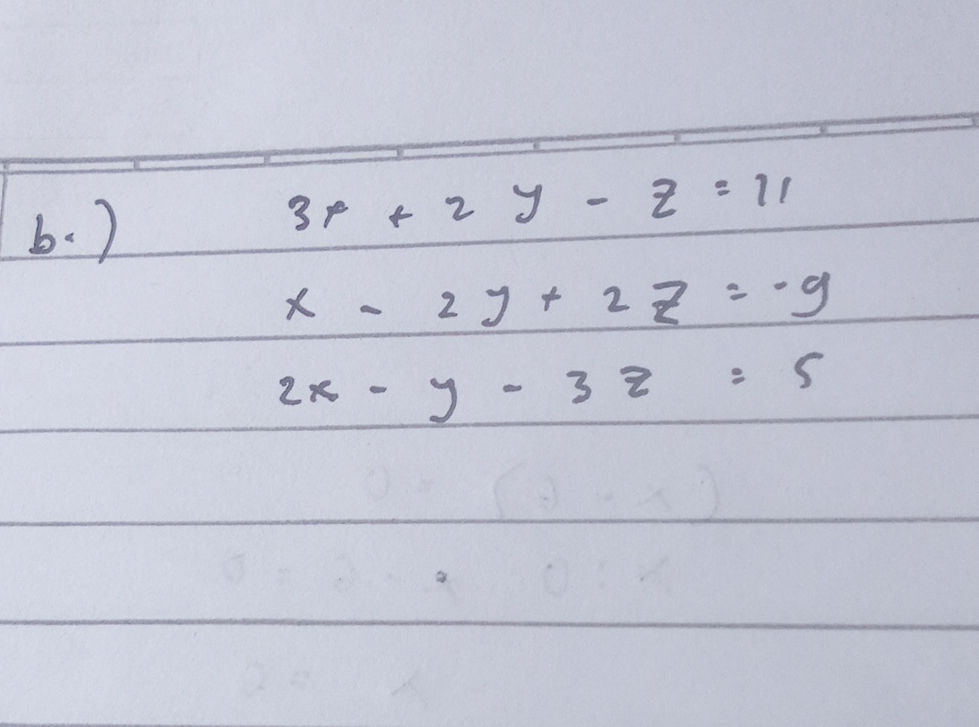 b.) 3x + 2y - z = 11
x - 2y + 2z = -9
2x - y - 3z = 5